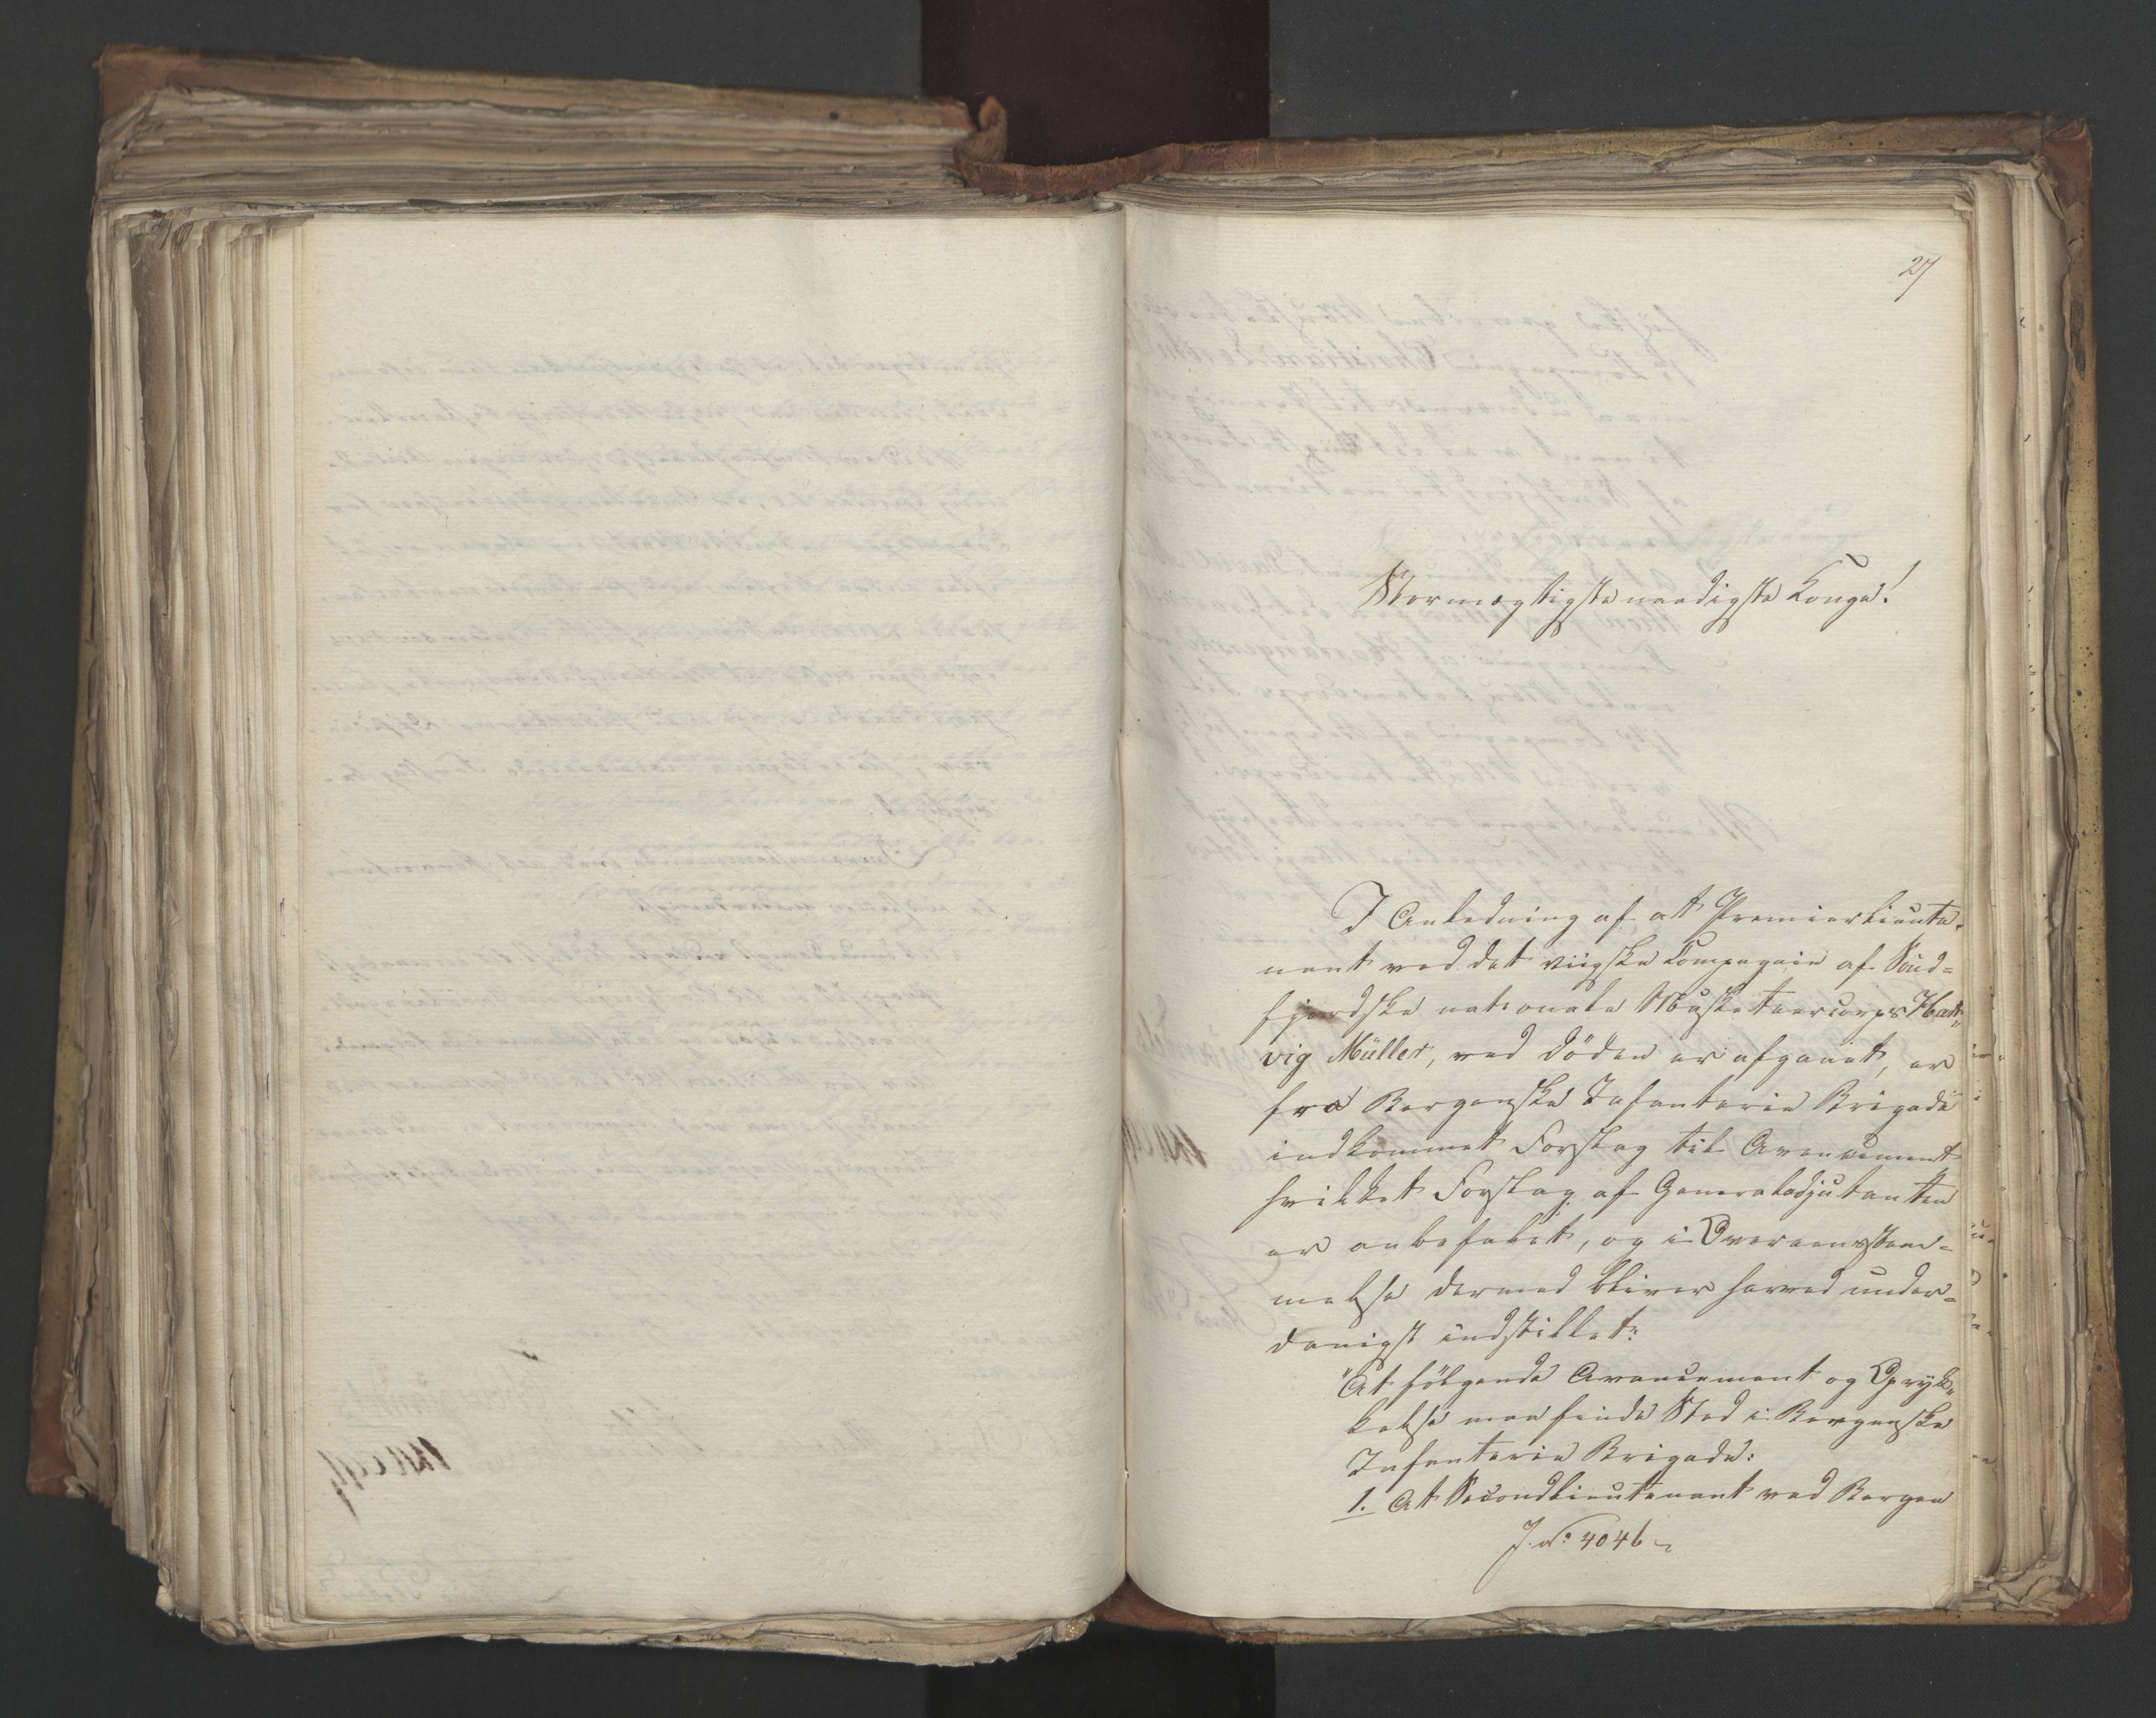 27
Stormægtigste naadigste Konge!
I Anledning af at Premierlieute-
nant ved det viigske Compagnie af Sönd-
fjordske nationale Musketeercorps Hart-
vig Müller, ved Döden er afgaaet, er
fra Bergenske Infanterie Brigade
indkommet Forslag til Avancement
hvilket Forslag af Generaladjutanten
er anbefalet, og i Overeensstem-
melse dermed bliver herved under-
danigst indstillet:
"At fölgende Avancement og Opryk-
kelse maa finde Sted i Bergenske
Infanterie Brigade:
1. At Secondlieutenant ved Bergen
J. N: 4046